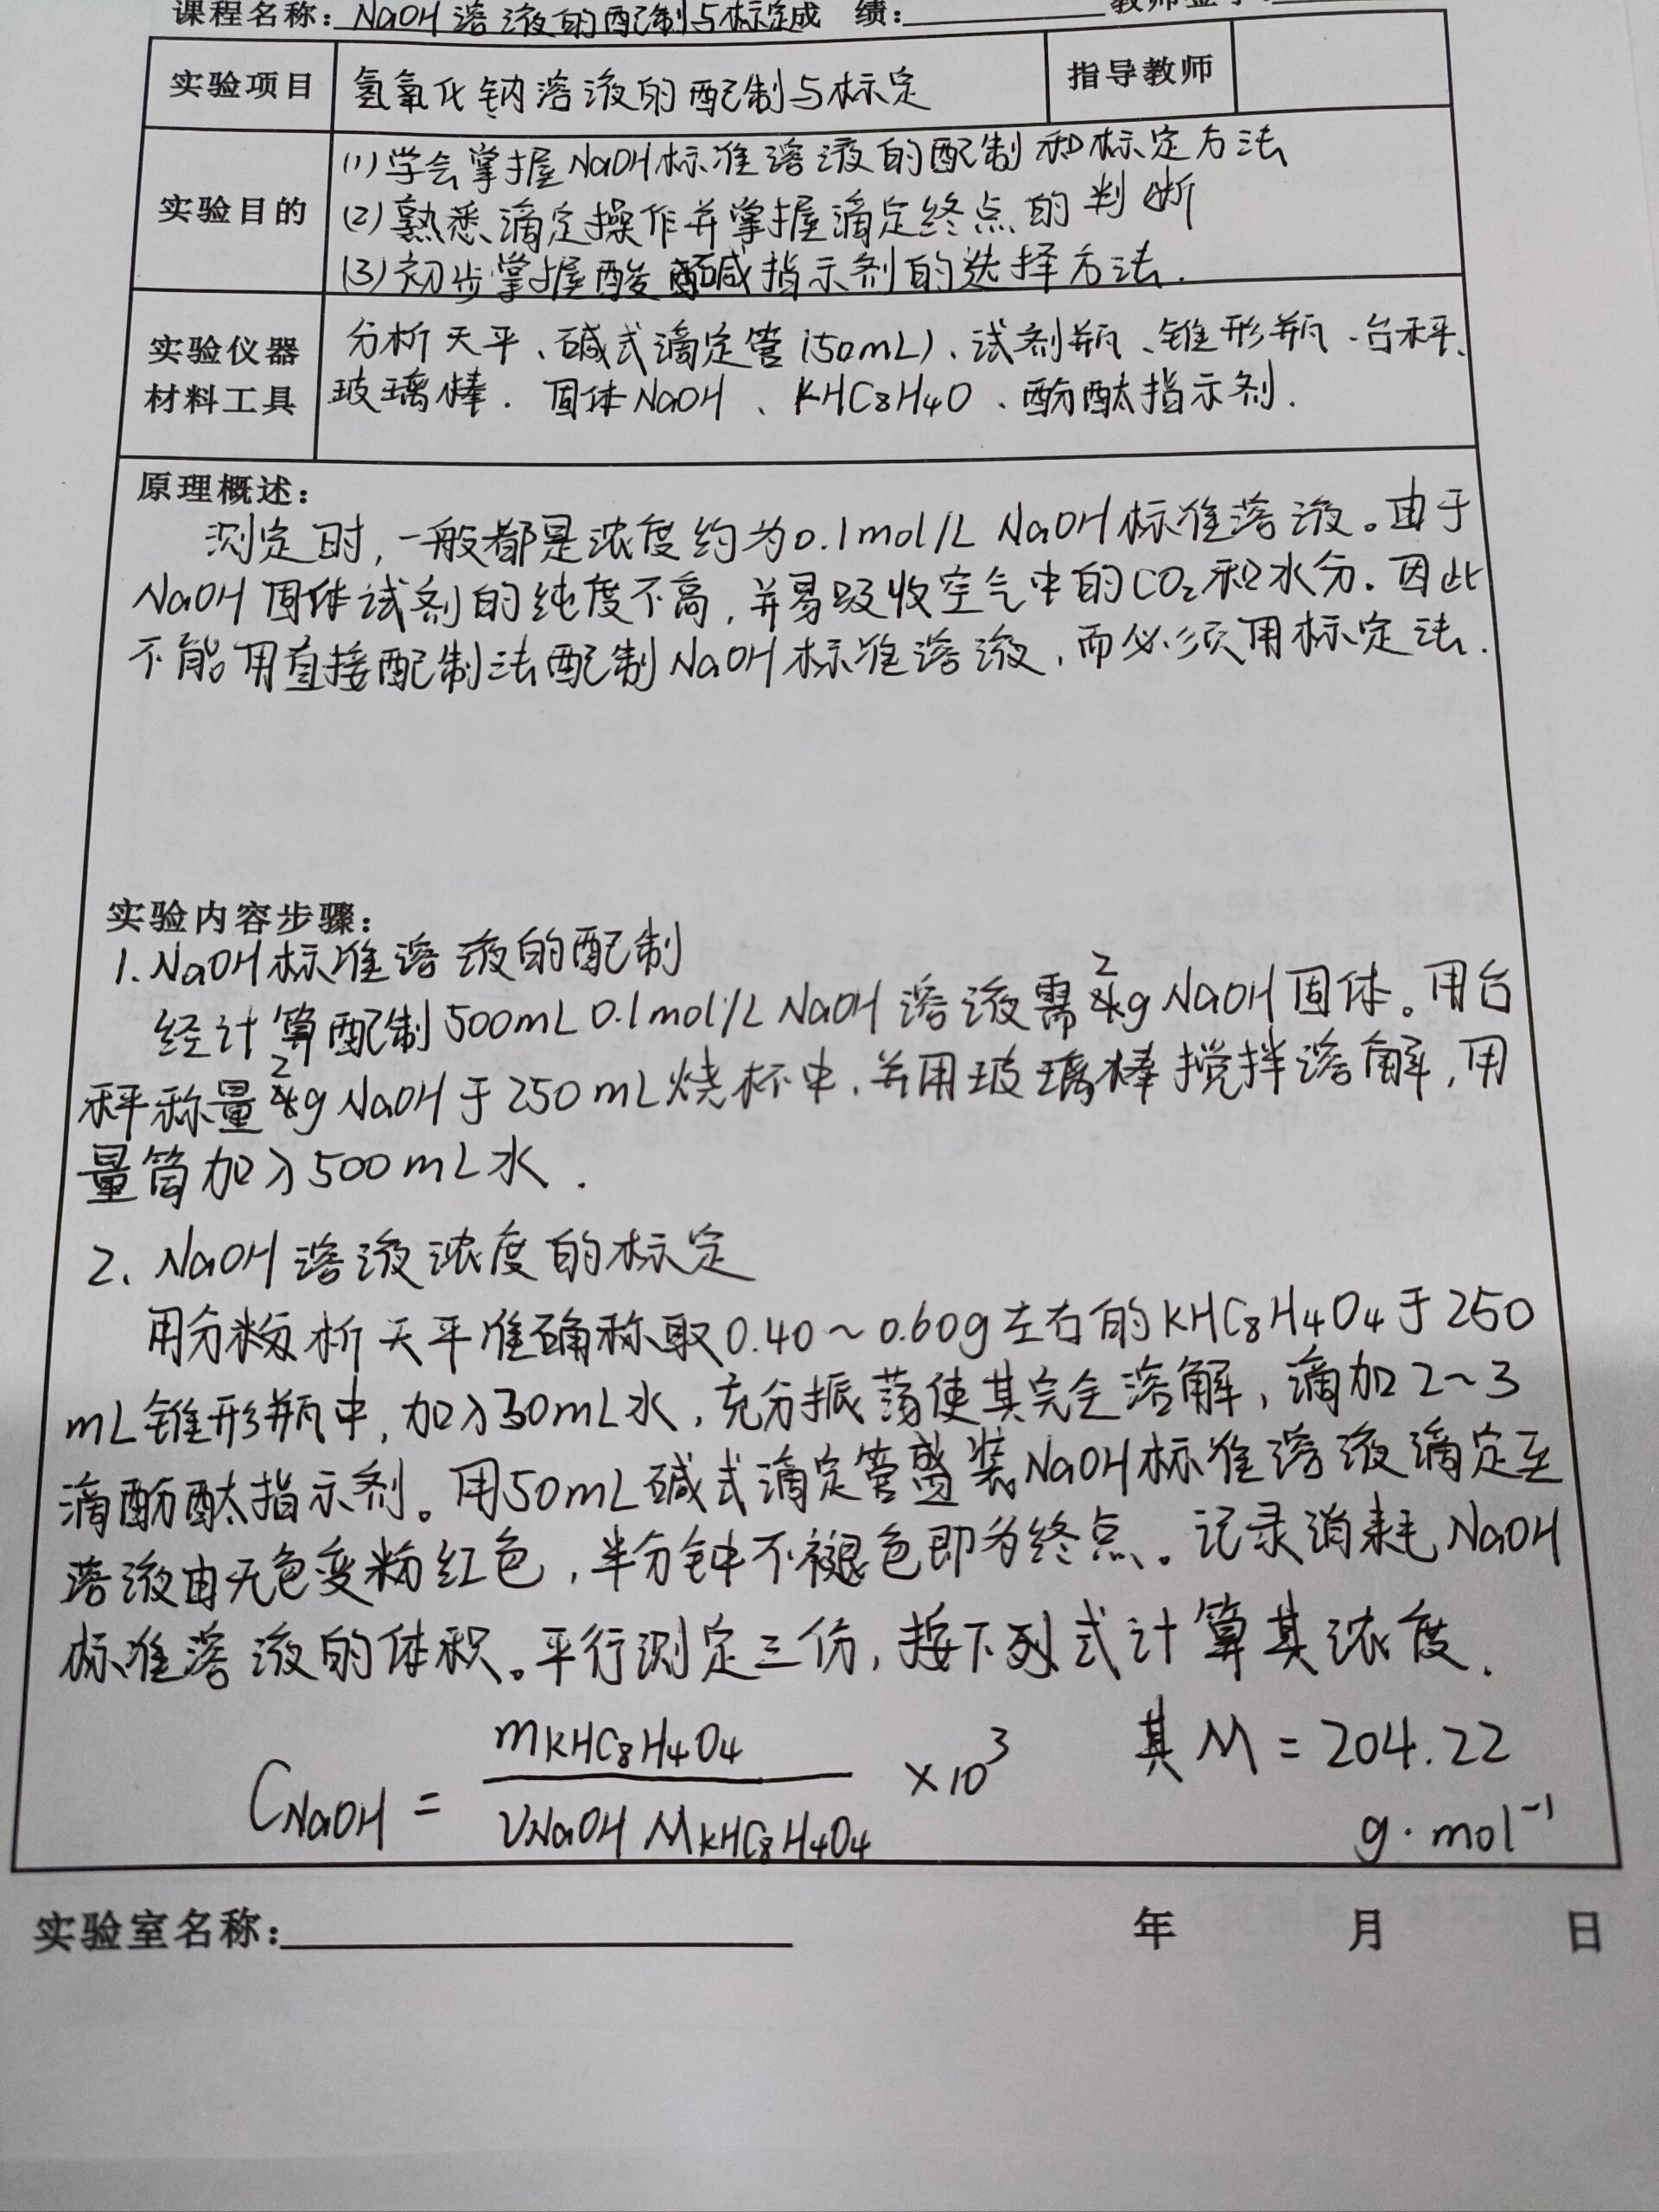 课程名称:NaOH溶液的配制与标定成 绩:
实验项目 氢氧化钠溶液的配制与标定 指导教师
实验目的
(1)学会掌握NaOH标准溶液的配制和标定方法
(2)熟悉滴定操作并掌握滴定终点的判断
(3)初步掌握酸碱指示剂的选择方法.
实验仪器
材料工具
分析天平、碱式滴定管(50mL)、试剂瓶、锥形瓶、台秤、
玻璃棒. 固体NaOH、KHC8H4O、酚酞指示剂.
原理概述:
测定时,一般都是浓度约为0.1mol/L NaOH标准溶液。由于
NaOH固体试剂的纯度不高,并易吸收空气中的CO₂和水分.因此
不能用直接配制法配制NaOH标准溶液,而必须用标定法.
实验内容步骤:
1.NaOH标准溶液的配制
经计算配制500mL 0.1mol/L NaOH溶液需2g NaOH固体。用台
秤称量2g NaOH于250mL烧杯中,并用玻璃棒搅拌溶解,用
量筒加入500mL水.
2. NaOH溶液浓度的标定
用分析天平准确称取0.40~0.60g左右的KHC8H4O4于250
mL锥形瓶中,加入30mL水,充分振荡使其完全溶解,滴加2~3
滴酚酞指示剂。用50mL碱式滴定管盛装NaOH标准溶液滴定至
溶液由无色变粉红色,半分钟不褪色即为终点。记录消耗NaOH
标准溶液的体积。平行测定三份,按下列式计算其浓度.
C_NaOH = m_KHC8H4O4 / V_NaOH M_KHC8H4O4 ×10³ 其M=204.22
g·mol⁻¹
实验室名称: 年 月 日